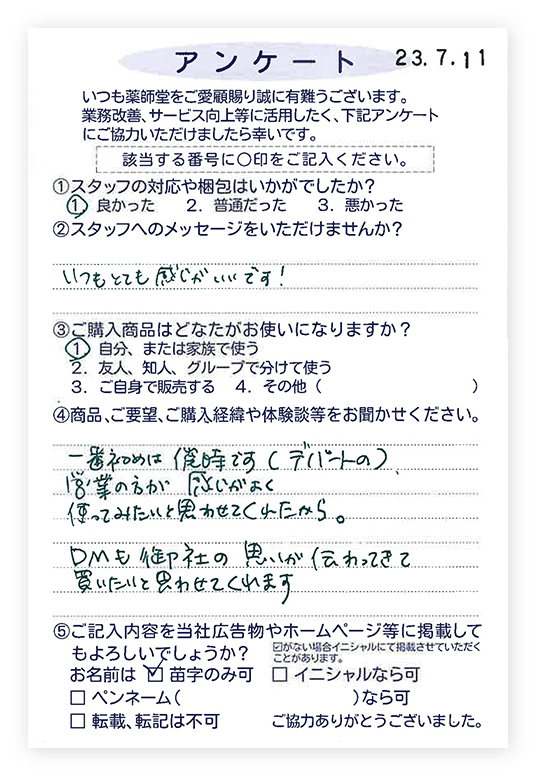 アンケート
23.7.11
いつも薬師堂をご愛顧賜り誠に有難うございます。
業務改善、サービス向上等に活用したく、下記アンケート
にご協力いただけましたら幸いです。
該当する番号に○印をご記入ください。
①スタッフの対応や梱包はいかがでしたか?
1. 良かった 2. 普通だった 3. 悪かった
②スタッフへのメッセージをいただけませんか?
いつもとても感じがいいです!
③ご購入商品はどなたがお使いになりますか?
1. 自分、または家族で使う
2. 友人、知人、グループで分けて使う
3. ご自身で販売する 4. その他( )
④商品、ご要望、ご購入経緯や体験談等をお聞かせください。
一番初めは催時です(デパートの)
営業の方が 感じがよく
使ってみたいと思わせてくれたから。
DMも御社の思いが伝わってきて
買いたいと思わせてくれます
⑤ご記入内容を当社広告物やホームページ等に掲載して
もよろしいでしょうか?
☑がない場合イニシャルにて掲載させていただく
ことがあります。
お名前は ☑ 苗字のみ可 □ イニシャルなら可
□ ペンネーム( )なら可
□ 転載、転記は不可 ご協力ありがとうございました。